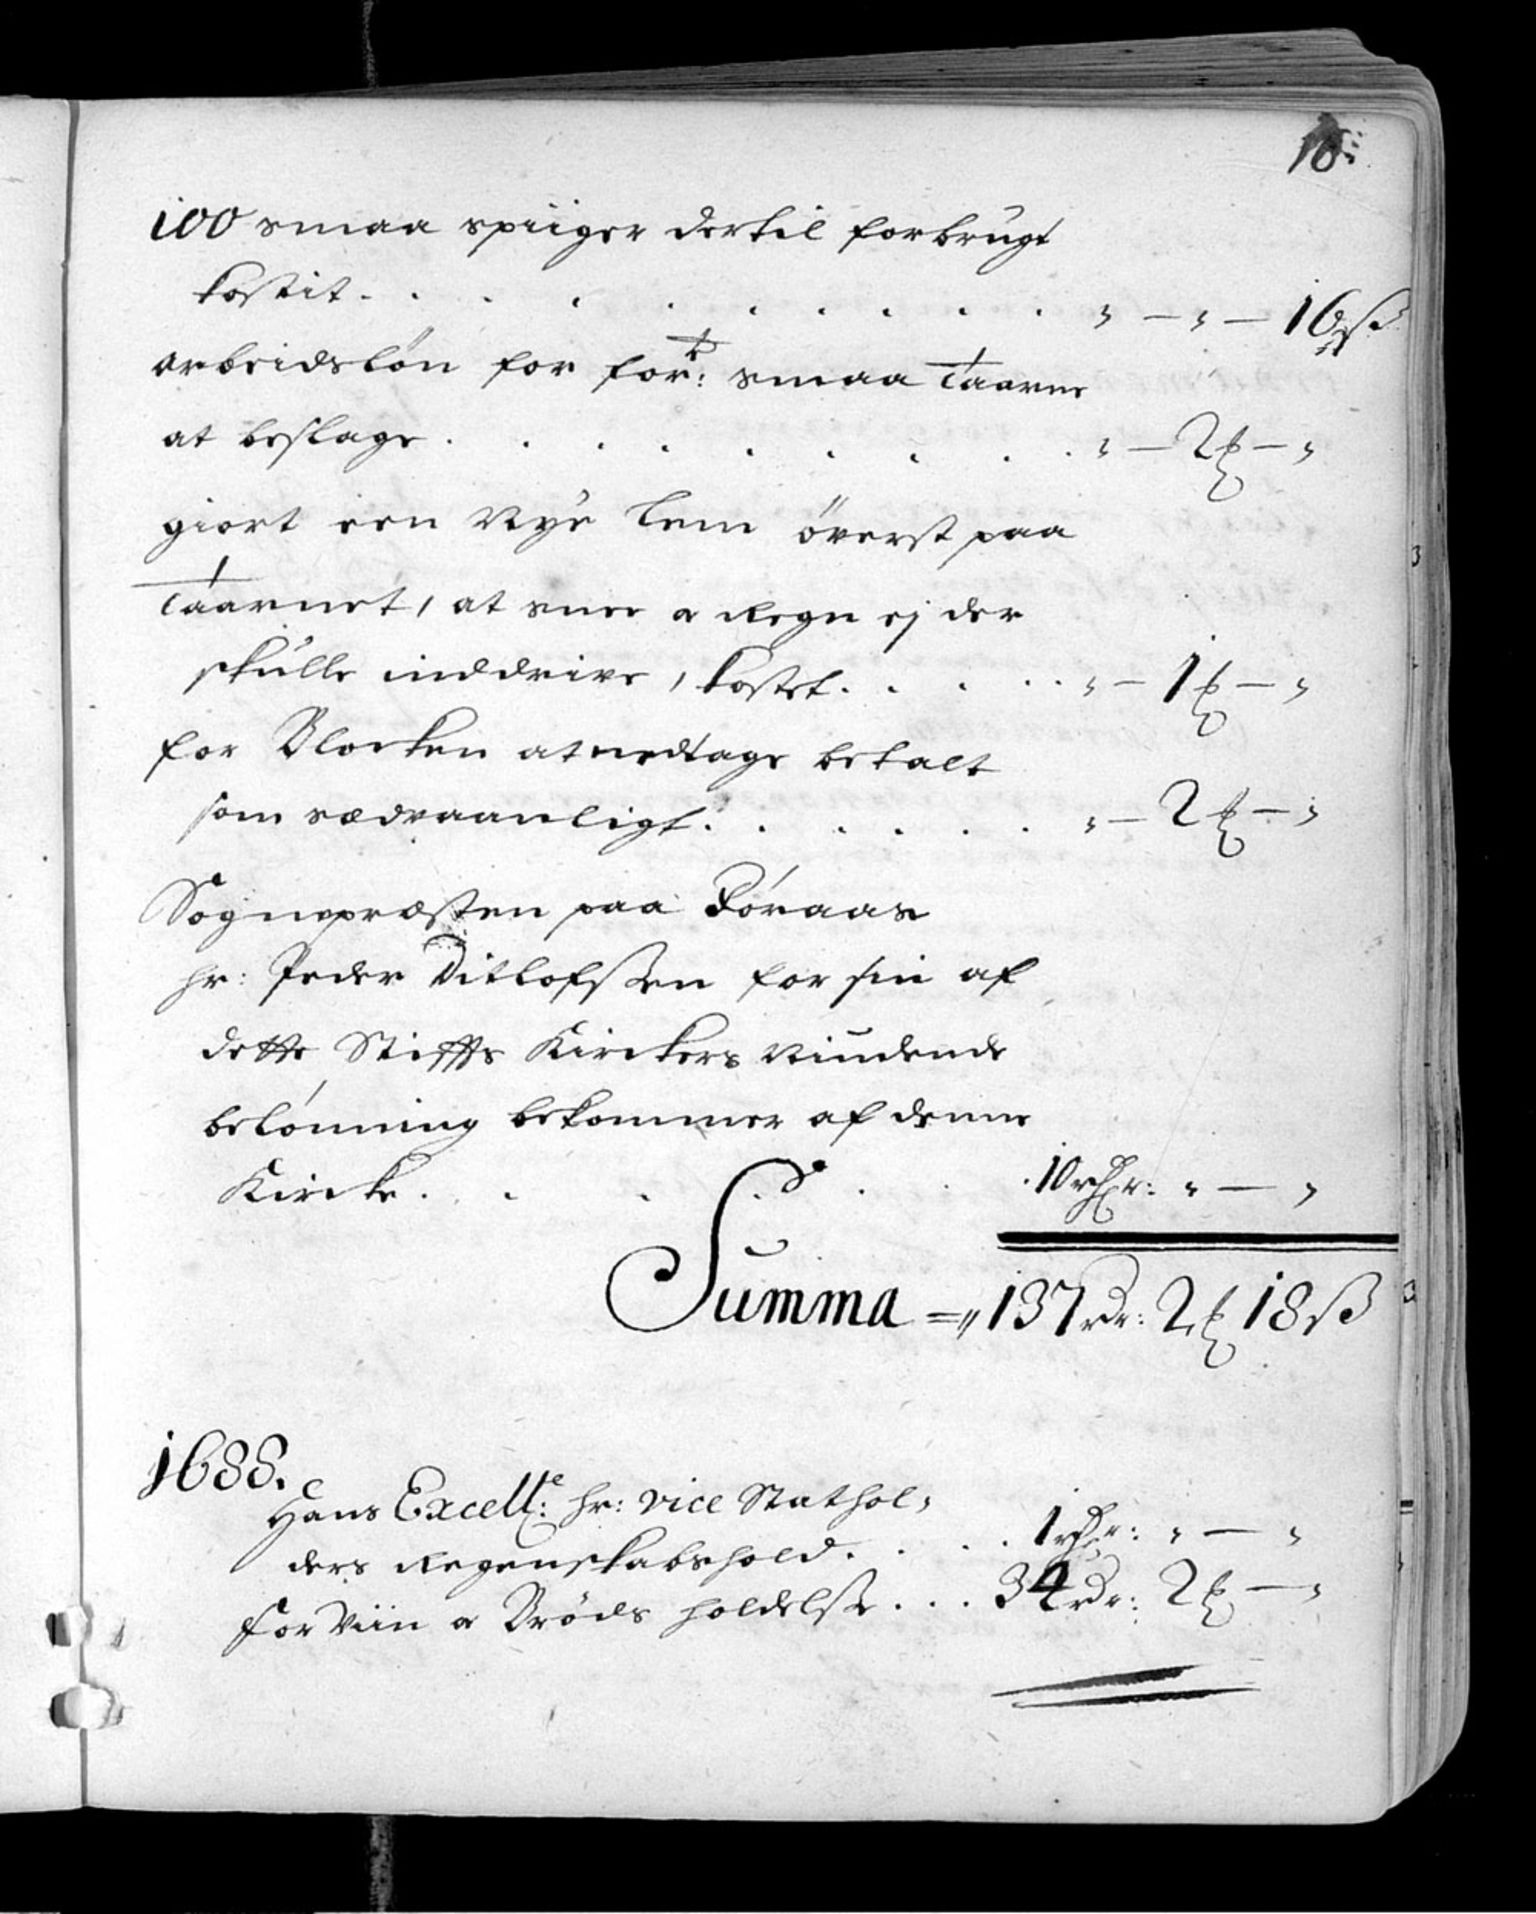 10:
100 smaa spiiger dertil forbrugt
kostit . . . . . . . . . „ — „ — 16 ß
arbeidsløn for for: smaa Taarne
at beslage . . . . . . . . . „ — 2 ℳ — „
giort een Nye Lem överst paa
Taarnet, at snee a Regn ej der
skulle inddrive, kostet . . . . . „ — 1 ℳ — „
for Klocken at nedtage betalt
som sædvaanligt . . . . . . „ — 2 ℳ — „
Sognepræsten paa Røraas
hr: Peder Ditlofsßen for sin af
dette Stiffts Kirckers Niudende
belønning bekommer af denne
Kircke . . . . . . 10 rdr: „ — „
Summa = „ 137 rdr: 2 ℳ 18 ß
1688.
Hans Excell: hr: vice Stathol„
ders Regenskabshold . . . . 1 rdr: „ — „
for Viin a Brøds holdelse . . . 34 rdr: 2 ℳ — „